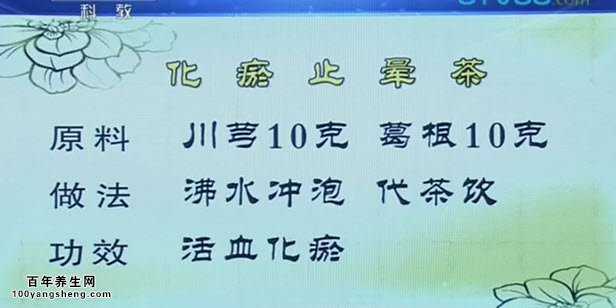 科教
化瘀止晕茶
原料 川芎10克 葛根10克
做法 沸水冲泡 代茶饮
功效 活血化瘀
百年养生网
100yangsheng.com